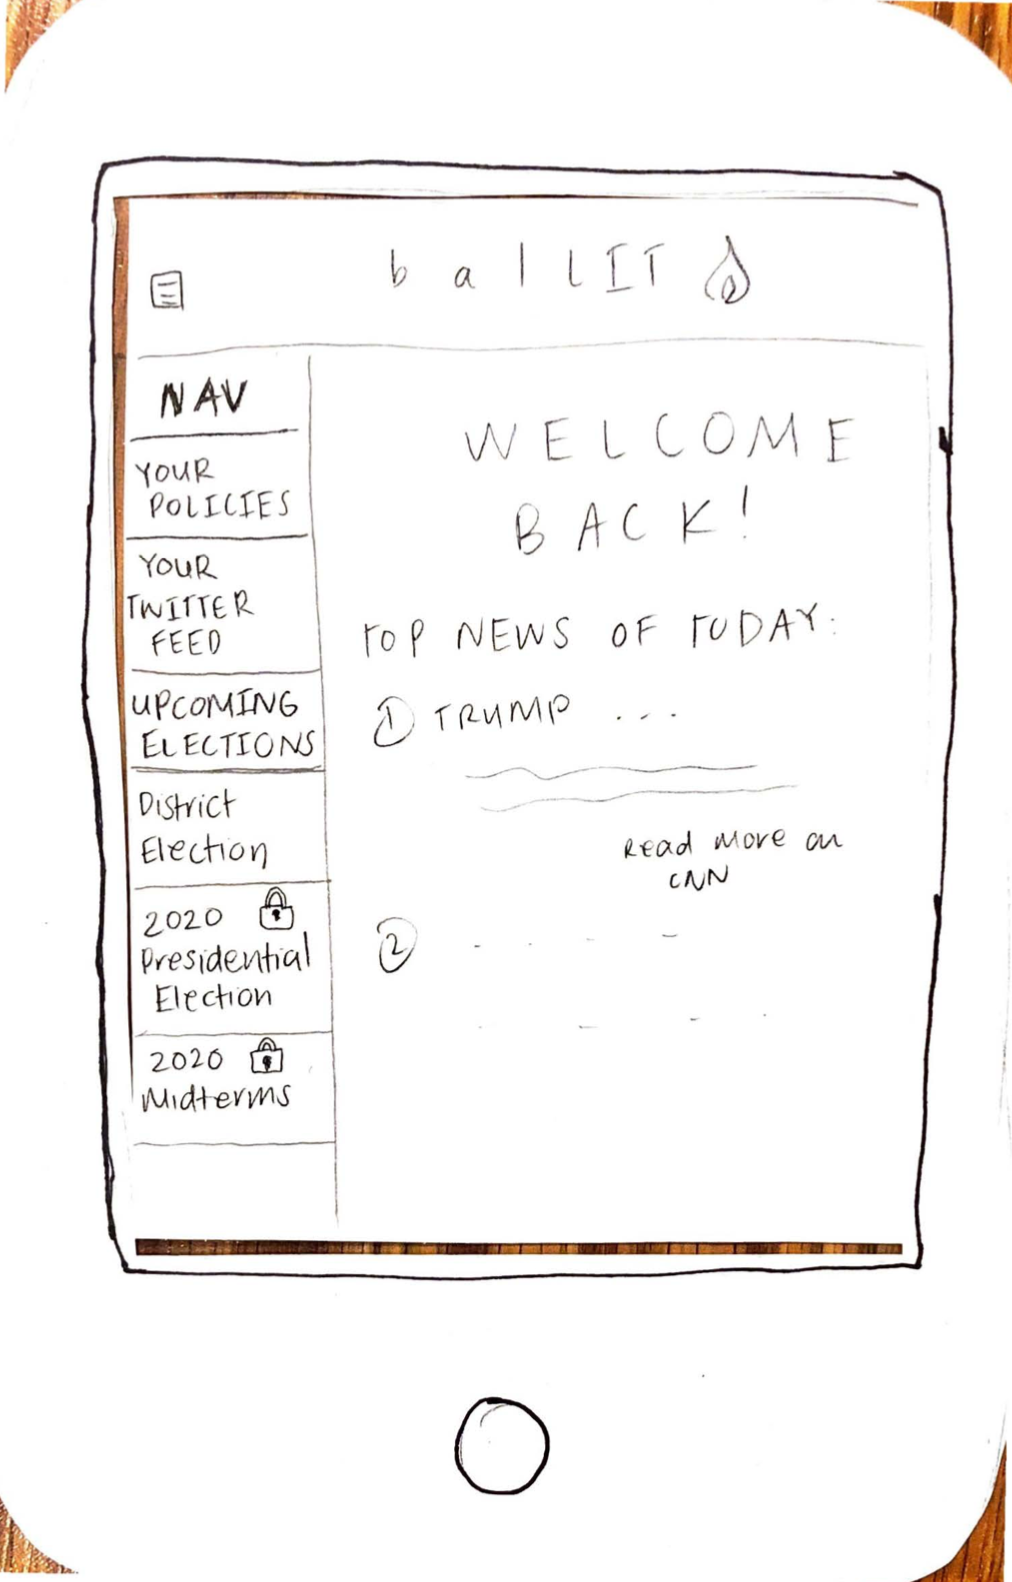 ballIT
NAV
YOUR
POLICIES
YOUR
TWITTER
FEED
UPCOMING
ELECTIONS
District
Election
2020
Presidential
Election
2020
Midterms
WELCOME
BACK!
TOP NEWS OF TODAY:
① TRUMP ...
Read More on
CNN
②